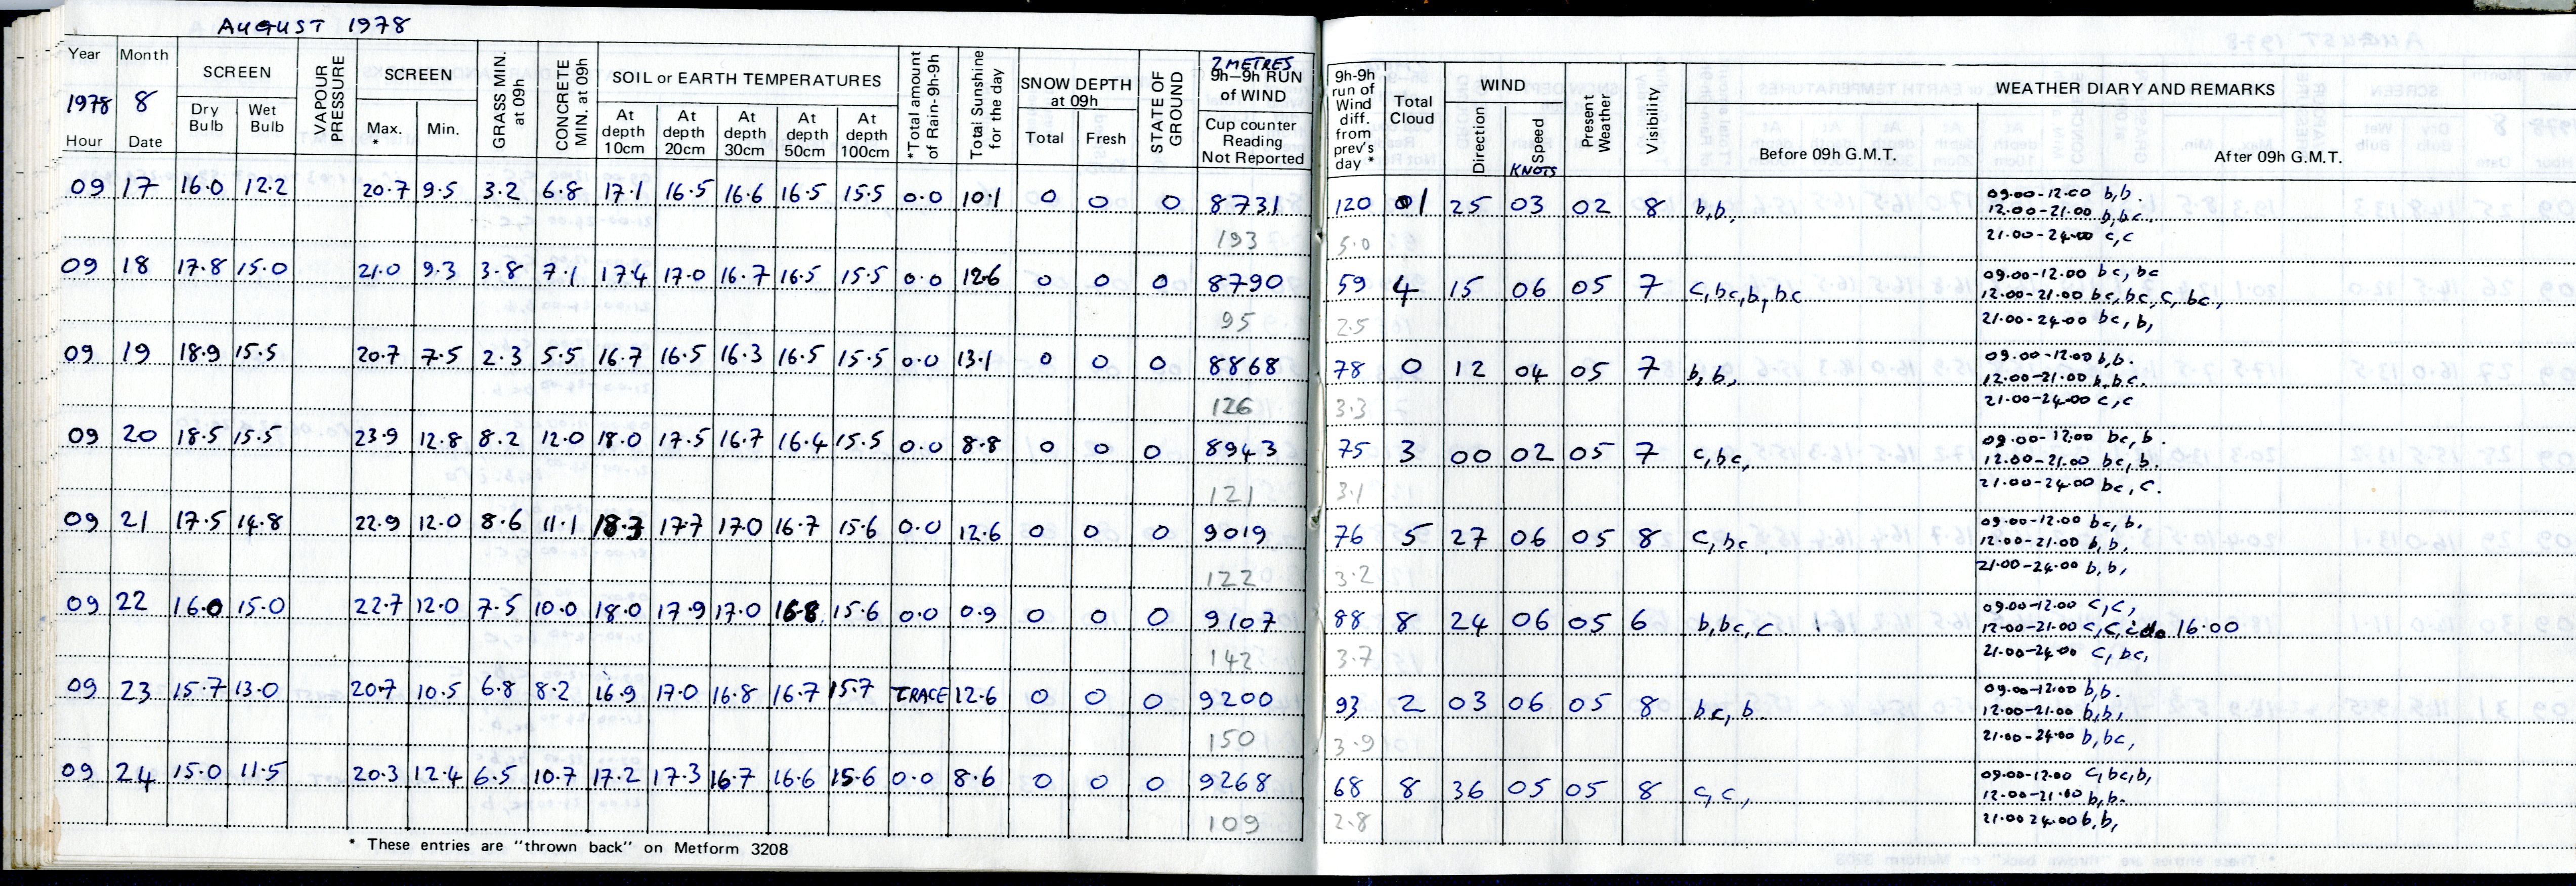 AUGUST 1978
Year Month SCREEN VAPOUR PRESSURE SCREEN GRASS MIN. at 09h CONCRETE MIN. at 09h SOIL or EARTH TEMPERATURES *Total amount of Rain-9h-9h Total Sunshine for the day SNOW DEPTH at 09h STATE OF GROUND 2 METRES 9h-9h RUN of WIND 9h-9h run of Wind diff. from prev's day * Total Cloud WIND Present Weather Visibility WEATHER DIARY AND REMARKS
1978 8 Dry Bulb Wet Bulb Max. * Min. At depth 10cm At depth 20cm At depth 30cm At depth 50cm At depth 100cm Total Fresh Cup counter Reading Not Reported Direction Speed KNOTS Before 09h G.M.T. After 09h G.M.T.
Hour Date
09 17 16.0 12.2 20.7 9.5 3.2 6.8 17.1 16.5 16.6 16.5 15.5 0.0 10.1 0 0 0 8731 120 01 25 03 02 8 b,b, 09.00-12.00 b,b.
12.00-21.00 b,bc,
193 5.0 21.00-24.00 c,c
09 18 17.8 15.0 21.0 9.3 3.8 7.1 17.4 17.0 16.7 16.5 15.5 0.0 12.6 0 0 0 8790 59 4 15 06 05 7 c,bc,b,bc 09.00-12.00 bc, bc
12.00-21.00 bc,bc,c,bc,
95 2.5 21.00-24.00 bc, b,
09 19 18.9 15.5 20.7 7.5 2.3 5.5 16.7 16.5 16.3 16.5 15.5 0.0 13.1 0 0 0 8868 78 0 12 04 05 7 b,b, 09.00-12.00 b,b.
12.00-21.00 b,bc.
126 3.3 21.00-24.00 c,c
09 20 18.5 15.5 23.9 12.8 8.2 12.0 18.0 17.5 16.7 16.4 15.5 0.0 8.8 0 0 0 8943 75 3 00 02 05 7 c,bc, 09.00-12.00 bc, b.
12.00-21.00 bc, b.
121 3.1 21.00-24.00 bc, c.
09 21 17.5 14.8 22.9 12.0 8.6 11.1 18.3 17.7 17.0 16.7 15.6 0.0 12.6 0 0 0 9019 76 5 27 06 05 8 c,bc. 09.00-12.00 bc, b.
12.00-21.00 b,b,
122 3.2 21.00-24.00 b,b,
09 22 16.0 15.0 22.7 12.0 7.5 10.0 18.0 17.9 17.0 16.8 15.6 0.0 0.9 0 0 0 9107 88 8 24 06 05 6 b,bc,c. 09.00-12.00 c,c,
12.00-21.00 c,c, 16.00
142 3.7 21.00-24.00 c, bc,
09 23 15.7 13.0 20.7 10.5 6.8 8.2 16.9 17.0 16.8 16.7 15.7 TRACE 12.6 0 0 0 9200 93 2 03 06 05 8 bc, b. 09.00-12.00 b,b.
12.00-21.00 b,b,
150 3.9 21.00-24.00 b,bc,
09 24 15.0 11.5 20.3 12.4 6.5 10.7 17.2 17.3 16.7 16.6 15.6 0.0 8.6 0 0 0 9268 68 8 36 05 05 8 c,c, 09.00-12.00 c,bc,b,
12.00-21.00 b,b.
109 2.8 21.00 24.00 b,b,
* These entries are "thrown back" on Metform 3208